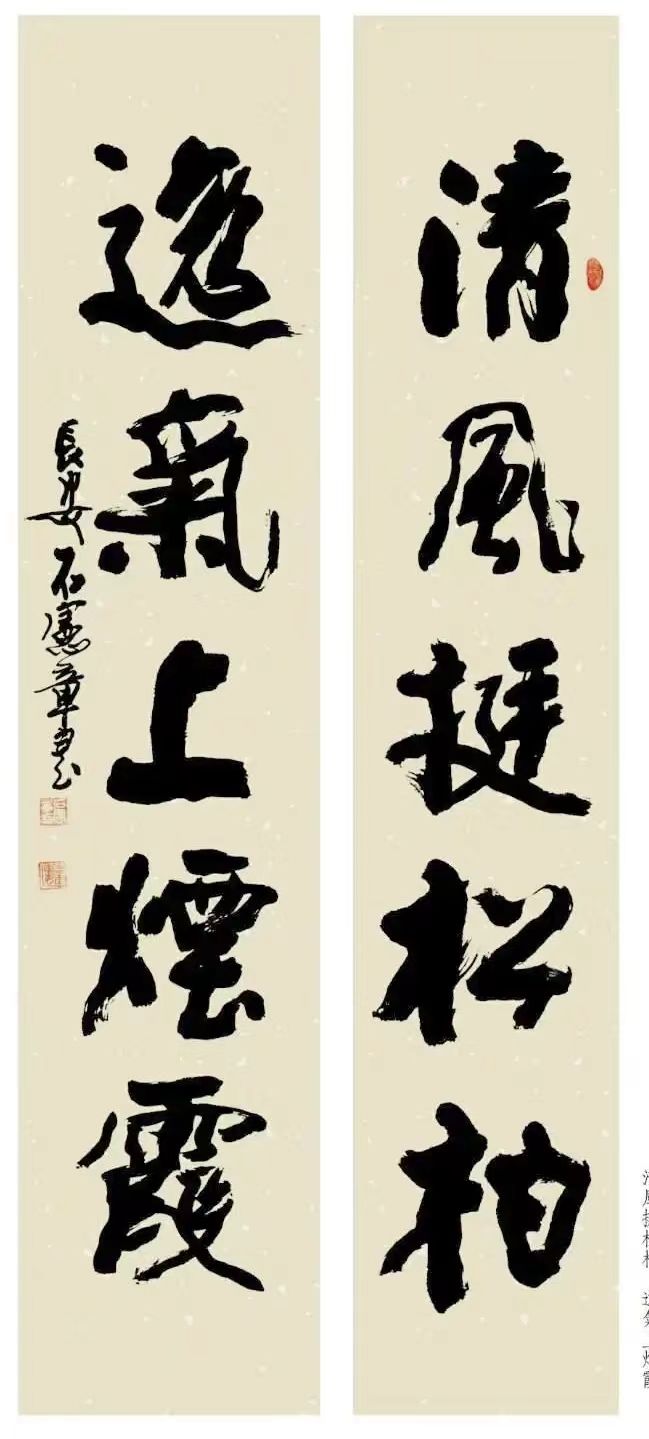 清風挺松柏
逸氣上煙霞
長安石憲章書